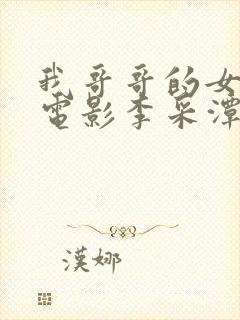 我哥哥的女
電影李采潭
漢娜